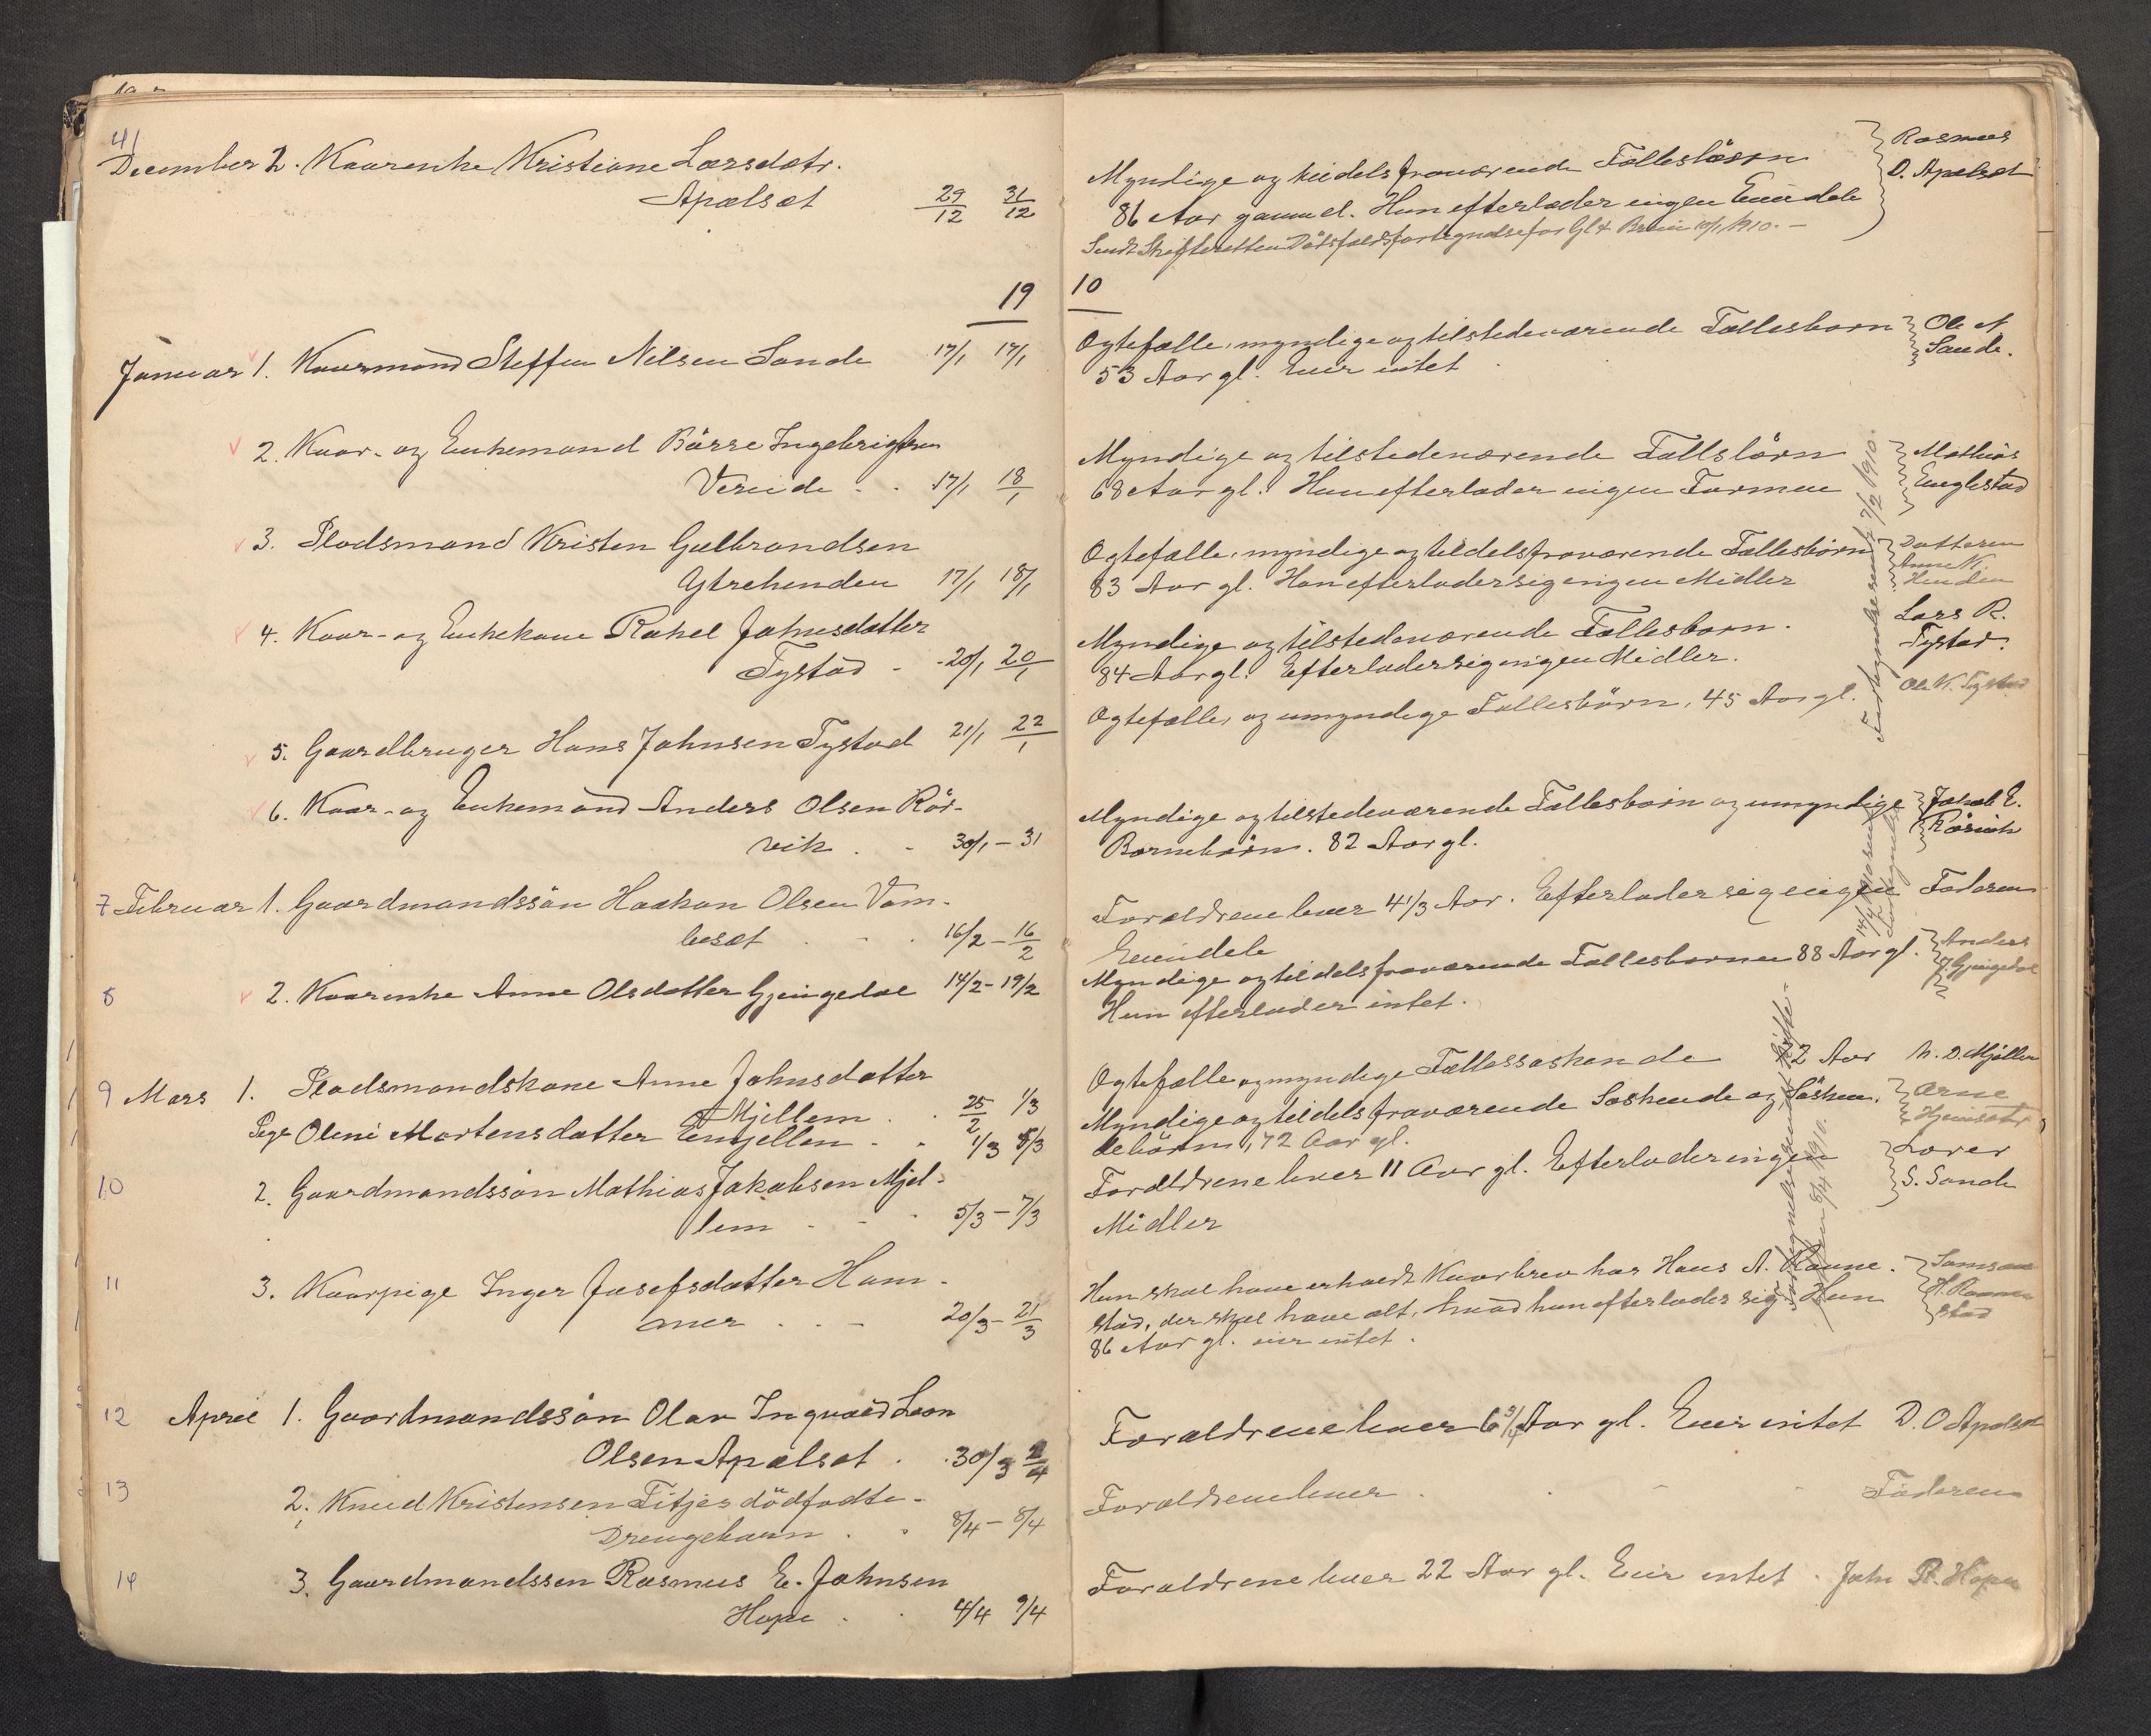 41
December 2. Kaarenke Kristiane Larsdatr.
Apalset 29/12 31/12
Myndige og tildels fraværende Fællesbörn
86 Aar gammel. Hun efterlader ingen Eiendele
Sendt Skifteretten Dödsfaldsfortegnelse for Gl 10/1 1910. -
Rasmus
D. Apalset
1910
Januar 1. Kaarmand Steffen Nilsen Sande 17/1 17/1
Ogtefælle, myndige og tilstedeværende Fællesborn
53 Aar gl. Eier intet
Ole N
Sande.
2. Kaar- og Enkemand Börre Ingebrigtsen
Vereide . . 17/1 18/1
Myndige og tilstedeværende Fællsbörn
68 Aar gl. Han efterlader ingen Formue
Mathias
Englestad
3. Pladsmand Kristen Gulbrandsen
Ytrehenden 17/1 18/1
Ogtefælle, myndige og tildels fraværende Fællesbörn
83 Aar gl. Han efterlader sig ingen Midler
Datteren
Anne K.
Henden
4. Kaar- og Enkekone Rahel Johnsdatter
Tystad - - 20/1 20/1
Myndige og tilstedeværende Fællesborn.
84 Aar gl. Efterlader sig ingen Midler.
Lars R.
Tystad.
5. Gaardbruger Hans Johnsen Tystad 21/1 22/1
Ogtefælle, og umyndige Fællesbörn, 45 Aar gl.
Ole K. Tystad
Fortegnelse sendt 7/2 1910.
6. Kaar- og Enkemand Anders Olsen Rör-
vik . - 30/1 - 31
Myndige og tilstedeværende Fællesborn og umyndige
Bornebörn. 82 Aar gl.
Jakob E.
Rörvik
7 Februar 1. Gaardmandssön Haakon Olsen Vam-
besæt . - . 16/2 - 16/2
Forældrene lever 4 1/3 Aar. Efterlader sig ingen
Eiendele
Faderen
8 2. Kaarenke Anne Olsdatter Gjengedal 14/2 - 19/2
Myndige og tildels fraværende Fællesborn 88 Aar gl.
Hun efterlader intet.
Anders
Gjengedal
9 Mars 1. Pladsmandskone Anne Johnsdatter
Mjellem . . 25/2 1/3
Ogtefælle og myndige Fællessøskende 2 Aar
M. D. Mjellem
Pige Oleni Mortensdatter - . 1/3 8/3
Myndige og tildels fraværende Soskende og Sösken-
debörn, 72 Aar gl.
Arne
10 2. Gaardmandssön Mathias Jakobsen Mjel-
lem - - . 5/3 - 7/3
Forældrene lever 11 Aar gl. Efterlader ingen
Midler
S. Sande
11 3. Kaarpige Inger Josefsdatter Ham-
mer . . - 20/3 - 21/3
Hun skal have erholdt Kaarbrev hos Hans A. Ronne-
stad, der skal have alt, hvad hun efterlader sig. Hun
86 Aar gl. eier intet.
12 April 1. Gaardmandssön Olav Ingvald Leon
Olsen Apalset . . 30/3 2/4
Forældrene lever 6 3/4 Aar gl. Eier intet D. O Apalset
13 2. Knud Kristensen Fitjes dödfödte
Drengebarn . . 8/4 - 8/4
Forældrene lever . . - - Faderen
14 3. Gaardmandssen Rasmus E. Johnsen
Hope . . 4/4 9/4
Forældrene lever 22 Aar gl. Eier intet . John R. Hope